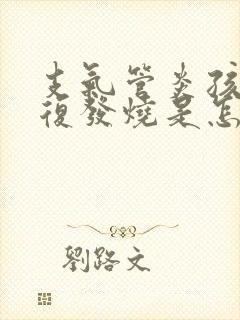 支氣管炎孩
復發燒是怎
劉路文